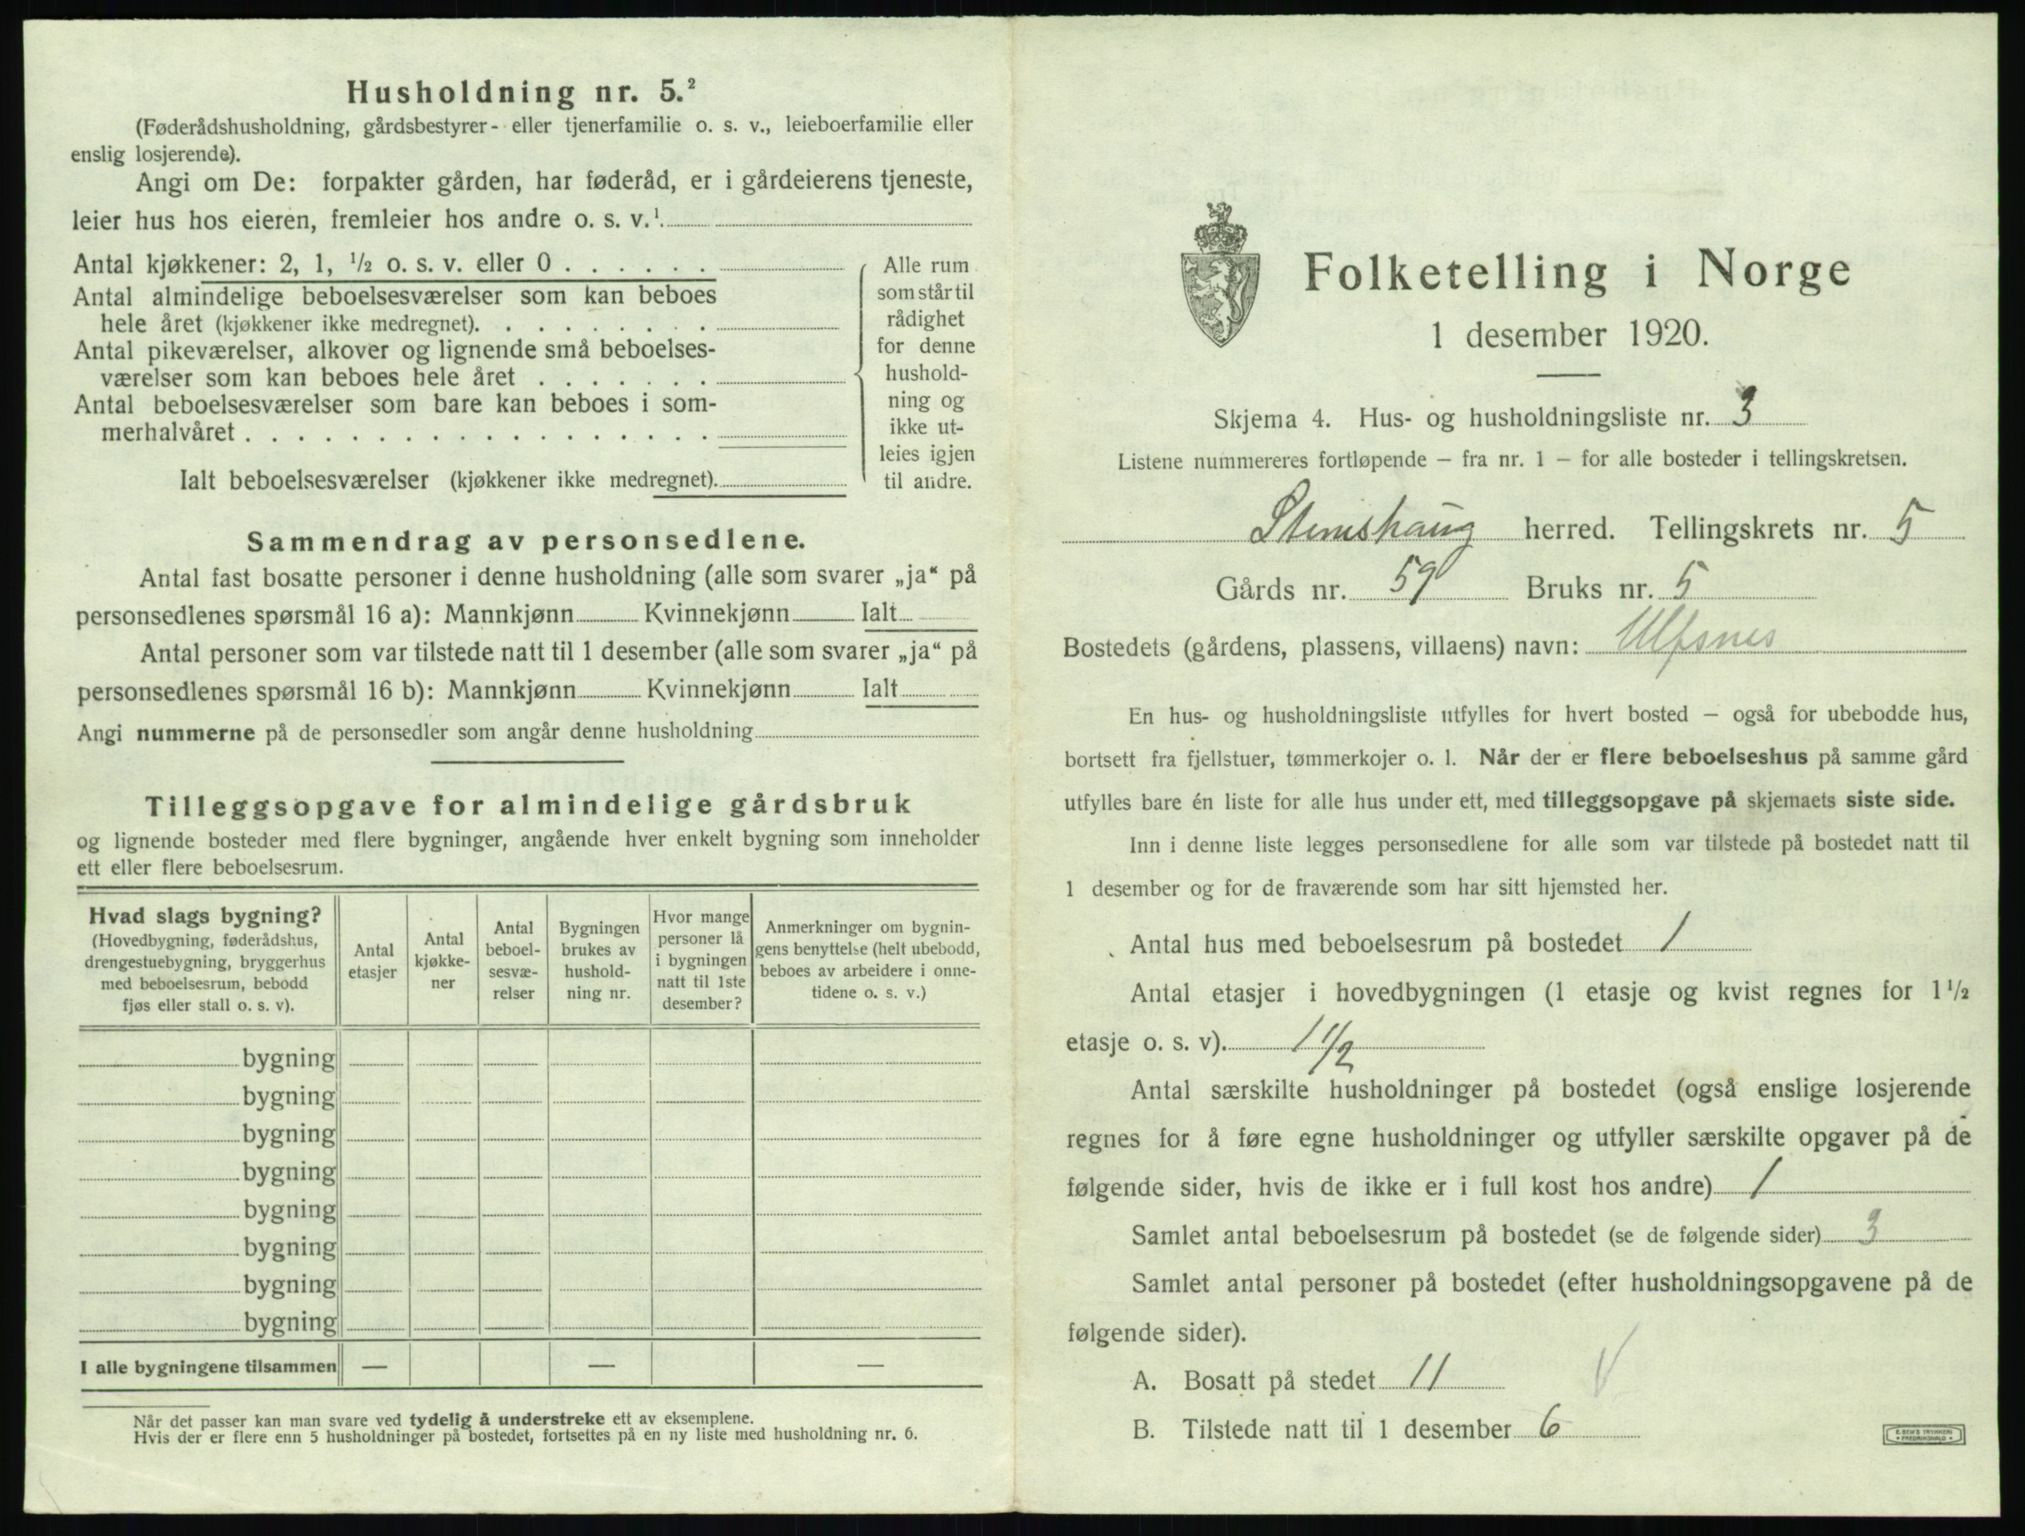 Husholdning nr. 5.²
(Føderådshusholdning, gårdsbestyrer- eller tjenerfamilie o. s. v., leieboerfamilie eller
enslig losjerende).
Angi om De: forpakter gården, har føderåd, er i gårdeierens tjeneste,
leier hus hos eieren, fremleier hos andre o. s. v.¹
Antal kjøkkener: 2, 1, ½ o. s. v. eller 0 . . . . . .
Antal almindelige beboelsesværelser som kan beboes
hele året (kjøkkener ikke medregnet). . . . . . . . .
Antal pikeværelser, alkover og lignende små beboelses-
værelser som kan beboes hele året . . . . . . .
Antal beboelsesværelser som bare kan beboes i som-
merhalvåret . . . . . . . . . . . . . . . . . .
Ialt beboelsesværelser (kjøkkener ikke medregnet).
Alle rum
som står til
rådighet
for denne
hushold-
ning og
ikke ut-
leies igjen
til andre.
Sammendrag av personsedlene.
Antal fast bosatte personer i denne husholdning (alle som svarer „ja“ på
personsedlenes spørsmål 16 a): Mannkjønn Kvinnekjønn Ialt
Antal personer som var tilstede natt til 1 desember (alle som svarer „ja“ på
personsedlenes spørsmål 16 b): Mannkjønn Kvinnekjønn Ialt
Angi nummerne på de personsedler som angår denne husholdning
Tilleggsopgave for almindelige gårdsbruk
og lignende bosteder med flere bygninger, angående hver enkelt bygning som inneholder
ett eller flere beboelsesrum.
Hvad slags bygning?
(Hovedbygning, føderådshus,
drengestuebygning, bryggerhus
med beboelsesrum, bebodd
fjøs eller stall o. s. v).
Antal
etasjer
Antal
kjøkke-
ner
Antal
beboel-
sesvæ-
relser
Bygningen
brukes av
hushold-
ning nr.
Hvor mange
personer lå
i bygningen
natt til 1ste
desember?
Anmerkninger om bygnin-
gens benyttelse (helt ubebodd,
beboes av arbeidere i onne-
tidene o. s. v.)
bygning
bygning
bygning
bygning
bygning
bygning
bygning
bygning
I alle bygningene tilsammen — — —
Når det passer kan man svare ved tydelig å understreke ett av eksemplene.
Hvis der er flere enn 5 husholdninger på bostedet, fortsettes på en ny liste med husholdning nr. 6.
Folketelling i Norge
1 desember 1920.
Skjema 4. Hus- og husholdningsliste nr. 3
Listene nummereres fortløpende – fra nr. 1 – for alle bosteder i tellingskretsen.
Stemshaug herred. Tellingskrets nr. 5
Gårds nr. 59 Bruks nr. 5
Bostedets (gårdens, plassens, villaens) navn: Ulfsnes
En hus- og husholdningsliste utfylles for hvert bosted – også for ubebodde hus,
bortsett fra fjellstuer, tømmerkojer o. l. Når der er flere beboelseshus på samme gård
utfylles bare én liste for alle hus under ett, med tilleggsopgave på skjemaets siste side.
Inn i denne liste legges personsedlene for alle som var tilstede på bostedet natt til
1 desember og for de fraværende som har sitt hjemsted her.
Antal hus med beboelsesrum på bostedet 1
Antal etasjer i hovedbygningen (1 etasje og kvist regnes for 1½
etasje o. s. v). 1 1/2
Antal særskilte husholdninger på bostedet (også enslige losjerende
regnes for å føre egne husholdninger og utfyller særskilte opgaver på de
følgende sider, hvis de ikke er i full kost hos andre) 1
Samlet antal beboelsesrum på bostedet (se de følgende sider) 3
Samlet antal personer på bostedet (efter husholdningsopgavene på de
følgende sider).
A. Bosatt på stedet 11
B. Tilstede natt til 1 desember 6